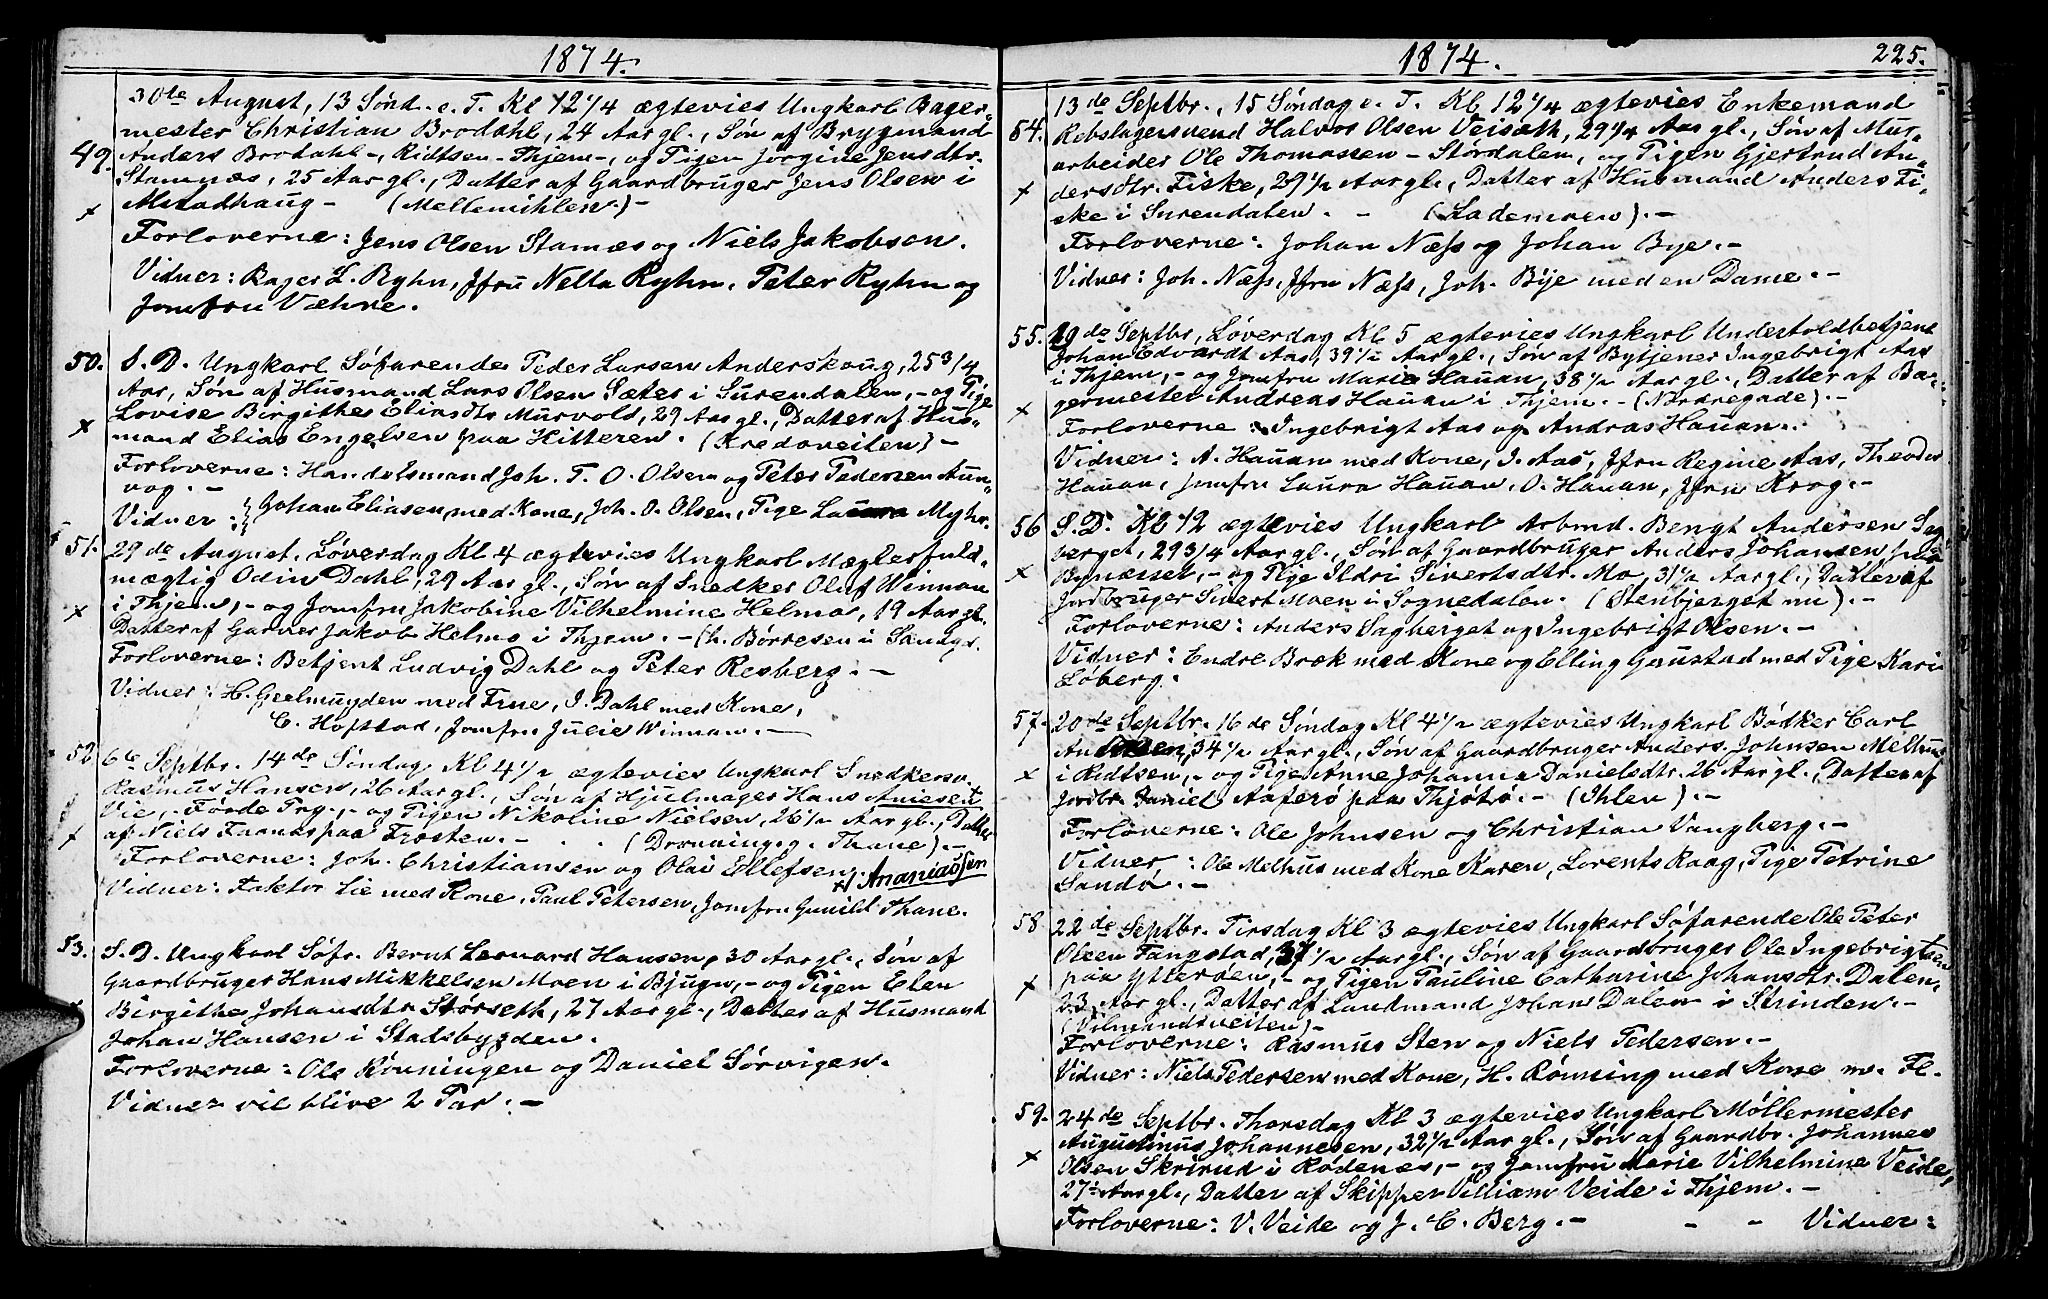 1874.
30te August, 13 Sønd. e. T. Kl 12 1/4 ægtevies Ungkarl Bager-
mester Christian Brodahl, 24 Aar gl., Søn af Brygmand
49. Anders Brodahl -, Ridtsen - Thjem -, og Pigen Jørgine Jensdtr.
Stamnæs, 25 Aar gl., Datter af Gaardbruger Jens Olsen i
x - (Mellemihlen.) -
Forloverne: Jens Olsen Stamæs og Niels Jakobson.
Vidner: Bager L. Ryhn, Jfru Nella Ryhn, Peter Ryhn og
Jomfru Væhre.
50. S. D. Ungkarl Søfarende Peder Larsen Anderskoug, 25 3/4
Aar, Søn af Husmand Lars Olsen Sæter i Surendalen, - og Pige
Lovise Birgithe Eliasdtr Murvold, 29 Aar gl., Datter af Hus-
x mand Elias Engelsen paa Hitteren. (Kredoveiten) -
Forloverne: Handelsmand Joh. T. O. Olsen og Peter Pedersen Aun-
vog. -
Vidner: Johan Eliasen, med Kone, Joh. O. Olsen, Pige Laura Myhr.
51. 29de August, Løverdag Kl 4 ægtevies Ungkarl Mæglerfuld-
mægtig Odin Dahl, 29 Aar gl., Søn af Snedker Oluf Winnan
x i Thjem, - og Jomfru Jakobine Vilhelmine Helmo, 19 Aar gl.
Datter af Garver Jakob Helmo i Thjem. - (h. Børresen i Sandgd.
Forloverne: Betjent Ludvig Dahl og Peter Resberg. -
Vidner: H. Geelmuyden med Frue, J. Dahl med Kone,
C. Hofstad, Jomfru Julie Winnan. -
52 6te Septbr. 14de Søndag Kl 4 1/2 ægtevies Ungkarl Snedkersv.
Rasmus Hansen, 26 Aar gl., Søn af Hjulmager Hans Aniesen +
Vie, Førde Prg., - og Pigen Nikoline Nielsen, 26 1/2 Aar gl., Datter
x af Niels Frants paa Frosten. - (Dronningg. Thane). -
Forloverne: Joh. Christiansen og Olai Ellefsen. +/ Ananiassen
Vidner: Faktor Lie med Kone, Paul Petersen, Jomfru Gunild Thane.
53. S. D. Ungkarl Søfr. Bernt Leonard Hansen, 30 Aar gl., Søn af
Gaardbruger Hans Mikkelsen Moen i Bjugn, - og Pigen Elen
x Birgithe Johansdtr Størseth, 27 Aar gl., Datter af Husmand
Johan Hansen i Stadsbygden.
Forloverne: Ole Rønningen og Daniel Sørvigen.
Vidner vil blive 2 Par. -
1874. 225.
13de Septbr., 15 Søndag e. T. Kl 12 1/4 ægtevies Enkemand
54. Rebslagersvend Halvor Olsen Veiseth, 29 1/4 Aar gl., Søn af Mur-
arbeider Ole Thomassen - Størdalen, og Pigen Gjertrud An-
x dersdtr. Fiske, 29 1/2 Aar gl., Datter af Husmand Anders Fi-
ske i Surendalen. - (Lademoen). -
Forloverne: Johan Næss og Johan Bye. -
Vidner: Joh. Næss, Jfru Næss, Joh. Bye med en Dame. -
55. 19de Septbr, Løverdag Kl 5 ægtevies Ungkarl Underfoldbetjent
Johan Edvardt Aas, 39 1/2 Aar gl., Søn af Bytjener Ingebrigt Aas
i Thjem, - og Jomfru Marie Hauan, 38 1/2 Aar gl., Datter af Ba-
x germester Andreas Hauan i Thjem. - (Nordregade). -
Forloverne: Ingebrigt Aas og Andras Hauan. -
Vidner: A. Hauan med Kone, I. Aas, Jfru Regine Aas, Theodor
Hauan, Jomfru Laura Hauan, O. Hauan, Jfru Krog. -
56 S. D. Kl 12 ægtevies Ungkarl Arbmd. Bengt Andersen Sag-
berget, 29 3/4 Aar gl., Søn af Gaardbruger Anders Johansen paa
x Bynæsset, - og Pige Ildri Sivertsdtr. Mo, 31 1/2 Aar gl., Datter af
Jordbruger Sivert Moen i Sognedalen. (Stenbjerget nu). -
Forloverne: Anders Sagberget og Ingebrigt Olsen. -
Vidner: Endre Bræk med Kone og Elling Gaustad med Pige Kari
Loberg.
57. 20de Septbr. 16de Søndag Kl 4 1/2 ægtevies Ungkarl Bødker Carl
Andersen, 34 1/2 Aar gl., Søn af Gaardbruger Anders Johnsen Melhus
x i Ridtsen, - og Pigen Anne Johanna Danielsdtr. 26 Aar gl., Datter af
Jordbr. Daniel Aaferø paa Thjøtø. - (Ihlen). -
Forloverne: Ole Johnsen og Christian Vangberg. -
Vidner: Ole Melhus med Kone Karen, Lorents Raag, Pige Petrine
Sandø. -
58 22de Septbr. Tirsdag Kl 3 ægtevies Ungkarl Søfarende Ole Peter
Olsen Fangstad, 37 1/2 Aar gl., Søn af Gaardbruger Ole Ingebrigtsen
x paa Ytterøen, - og Pigen Pauline Catharine Johansdtr. Dalen,
23 Aar gl., Datter af Landmand Johan Dalen i Strinden. -
(Vilmandsveiten) -
Forloverne: Rasmus Sten og Niels Pedersen. -
Vidner: Niels Pedersen med Kone, H. Rønning med Kone m. Fl.
59. 24de Septbr. Thorsdag Kl 3 ægtevies Ungkarl Møllermester
Augustinus Johannesen, 32 1/2 Aar gl., Søn af Gaardbr. Johannes
x Olsen Skrirud i Rødenes, - og Jomfru Marie Vilhelmine Veide,
27 Aar gl., Datter af Skipper Villiam Veide i Thjem. -
Forloverne: V. Veide og J. C. Berg. - - - Vidner: